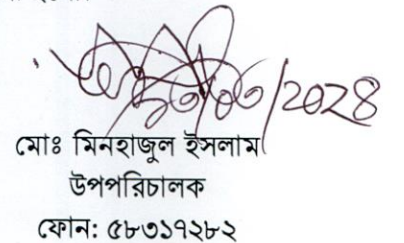 /২০২৪
মোঃ মিনহাজুল ইসলাম
উপপরিচালক
ফোন: ৫৮৩১৭২৮২